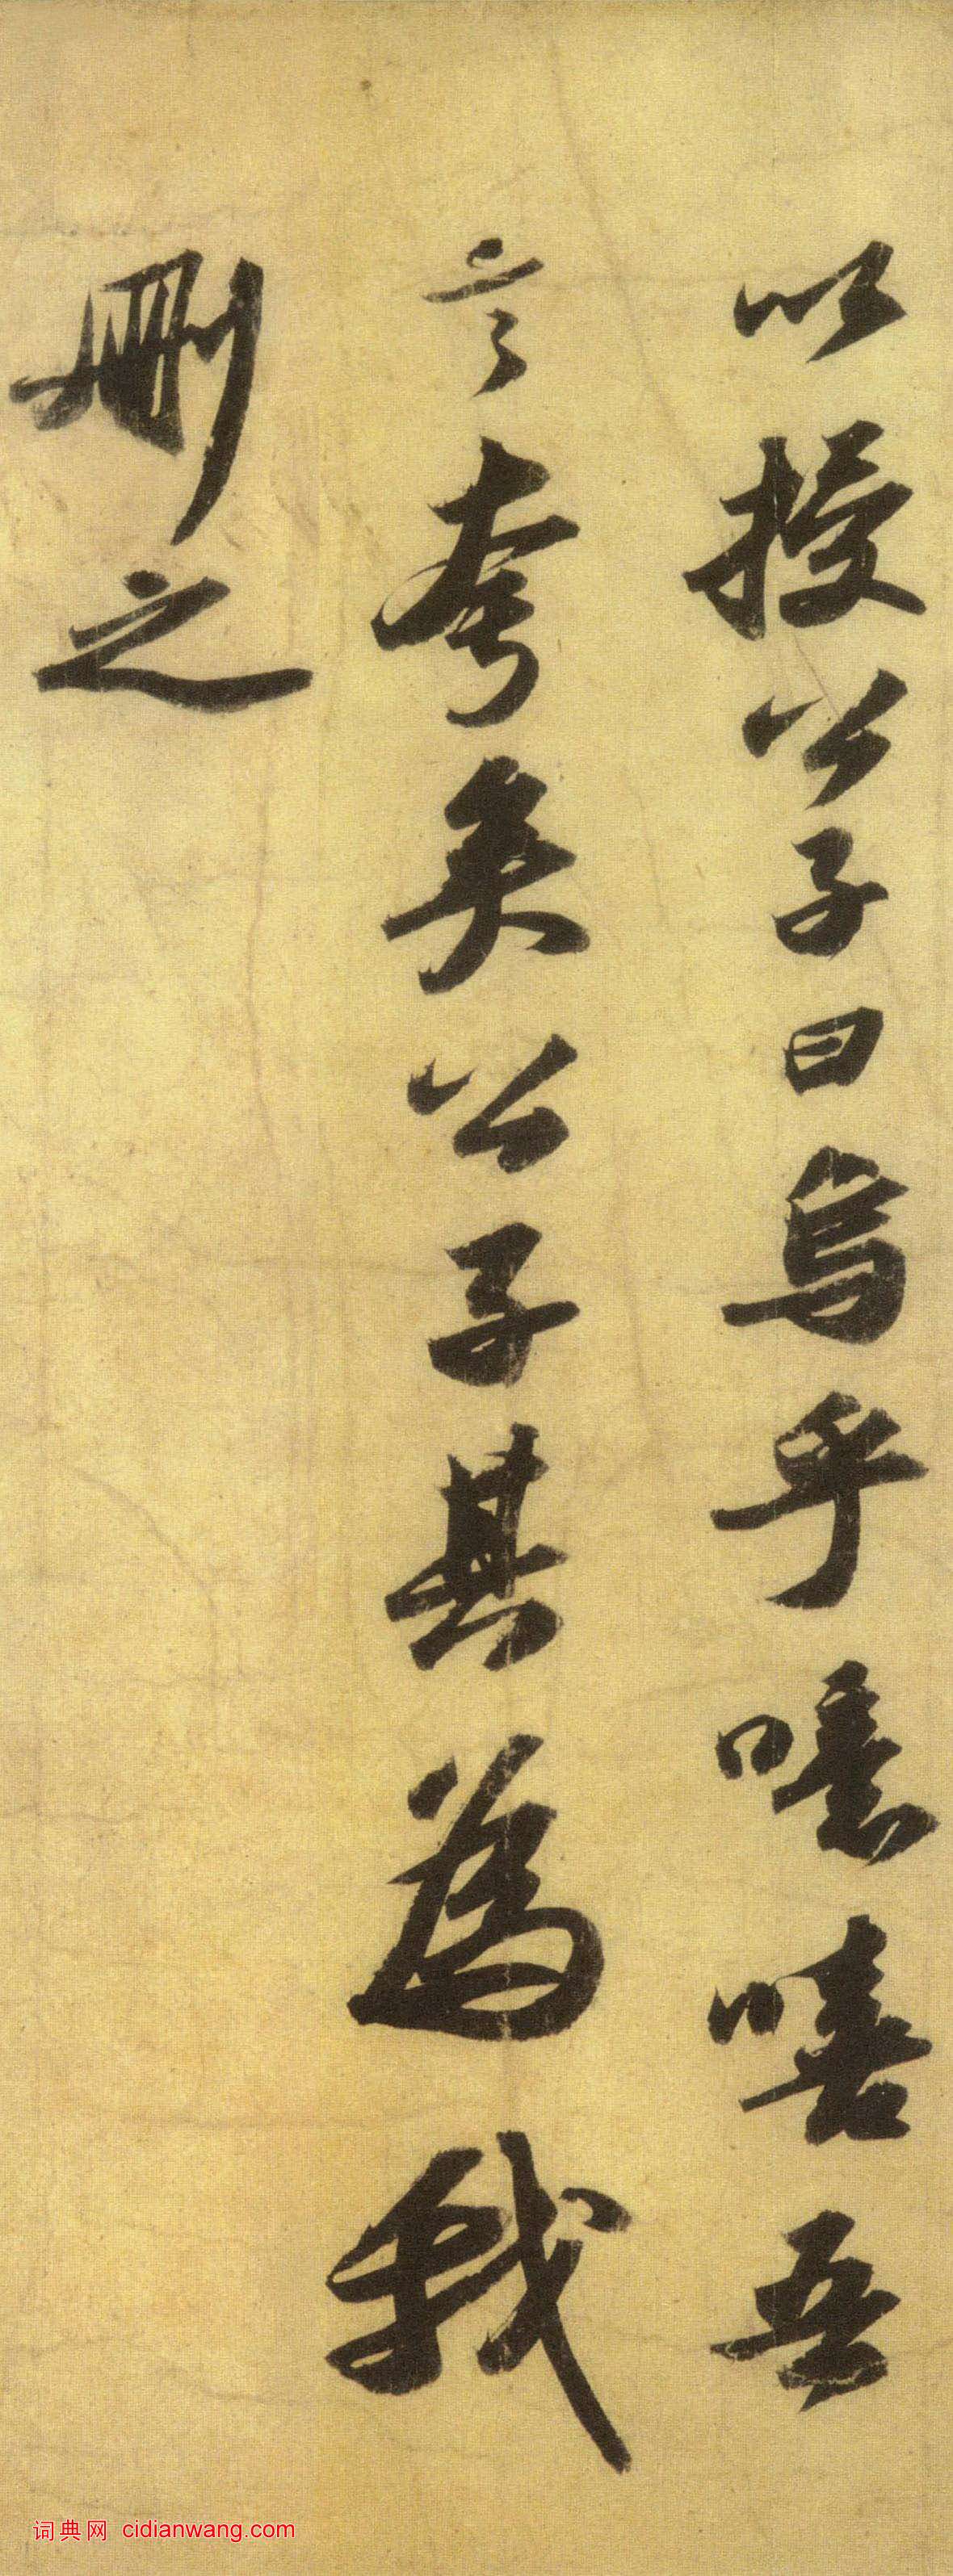 以授公子曰烏乎噫嘻吾
言夸矣公子其為我
刪之
词典网 cidianwang.com